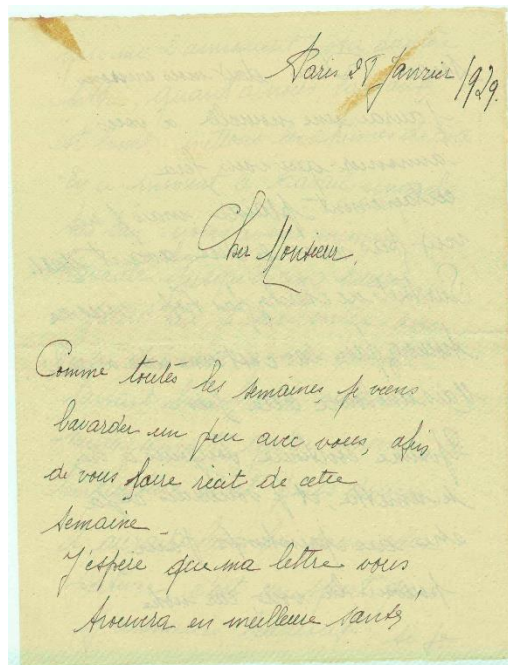 Paris 25 Janvier 1929.
Cher Monsieur,
Comme toutes les semaines, je viens
bavarder un peu avec vous, afin
de vous faire récit de cette
semaine.
J'espère que ma lettre vous
trouvera en meilleure santé